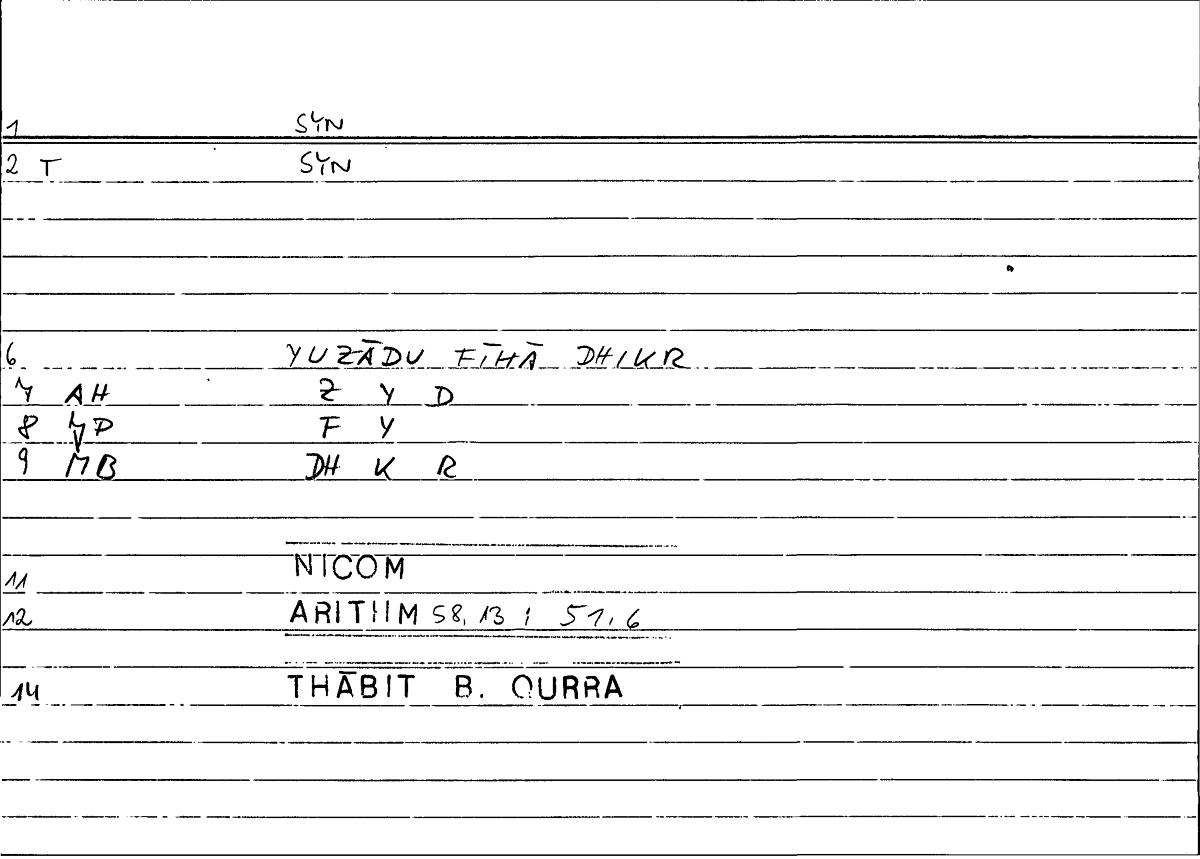 1 SYN
2 T SYN
6 YUZĀDU FĪHĀ DHIKR
7 AH Z Y D
8 F Y
9 MB DH K R
11 NICOM
12 ARITHM 58,13 ; 51,6
14 THĀBIT B. QURRA